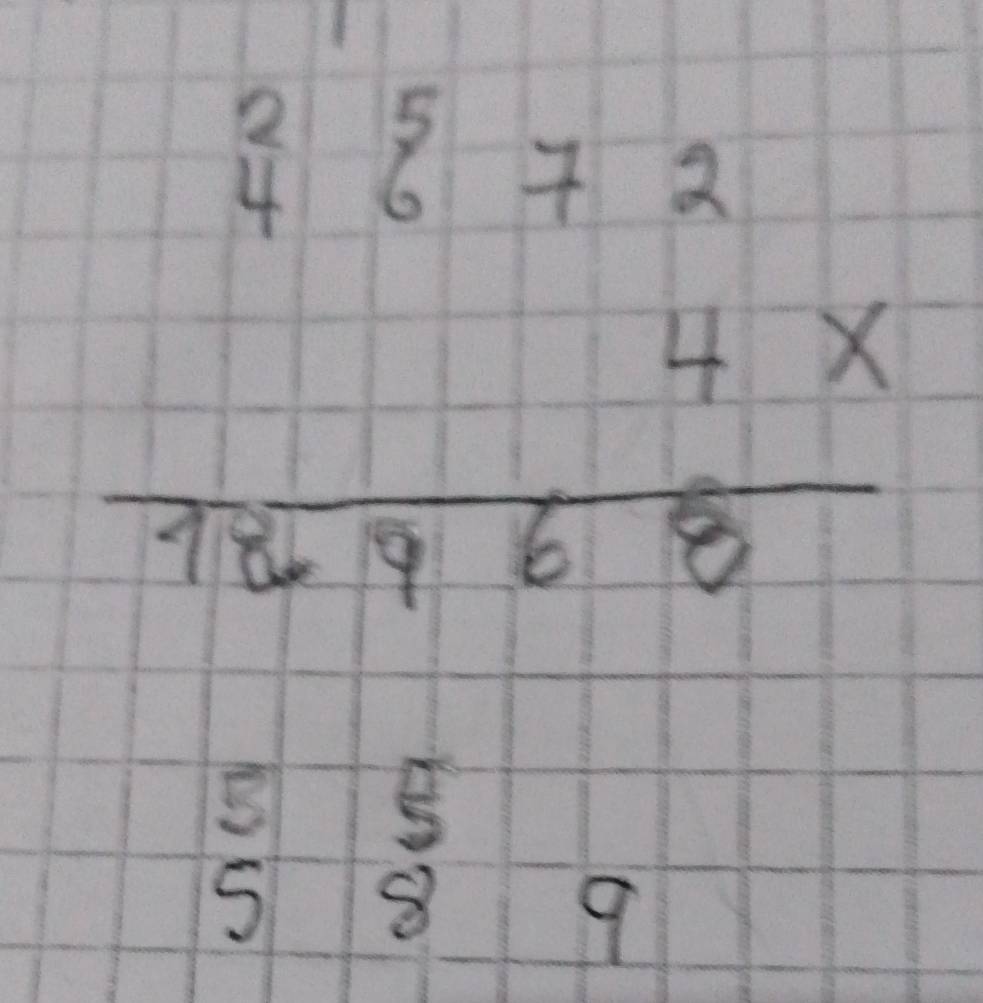 2 5
4 6 7 2
4 X
18 9 6 8
5 8 9